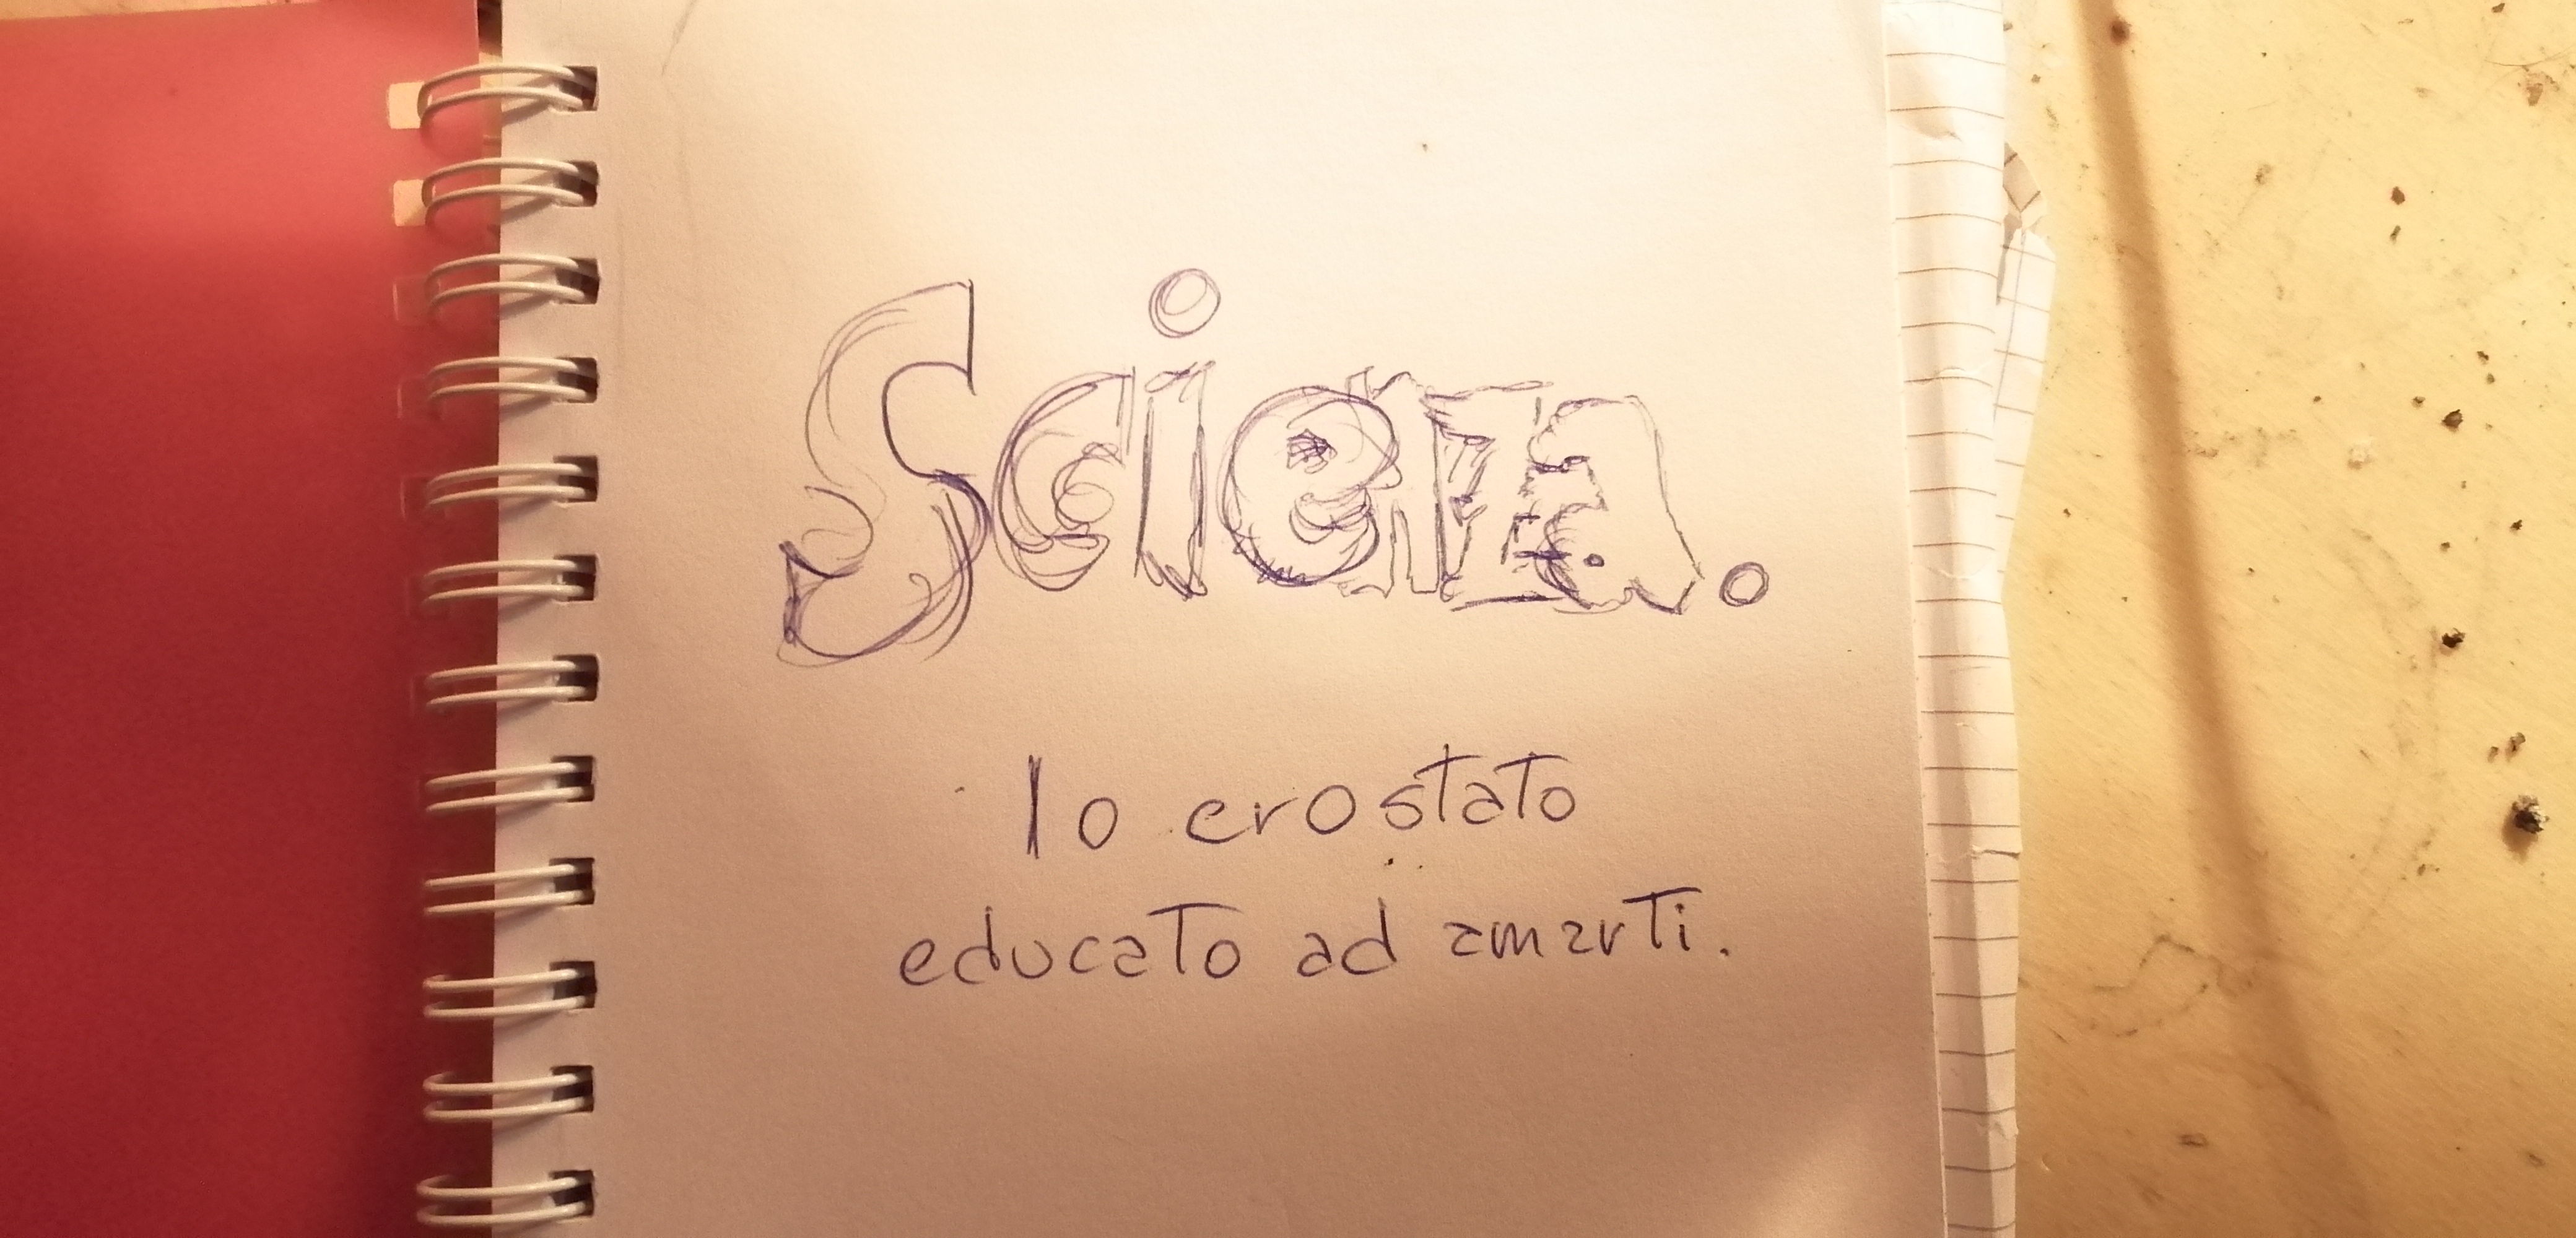 Scienza.
Io ero stato
educato ad amarti.